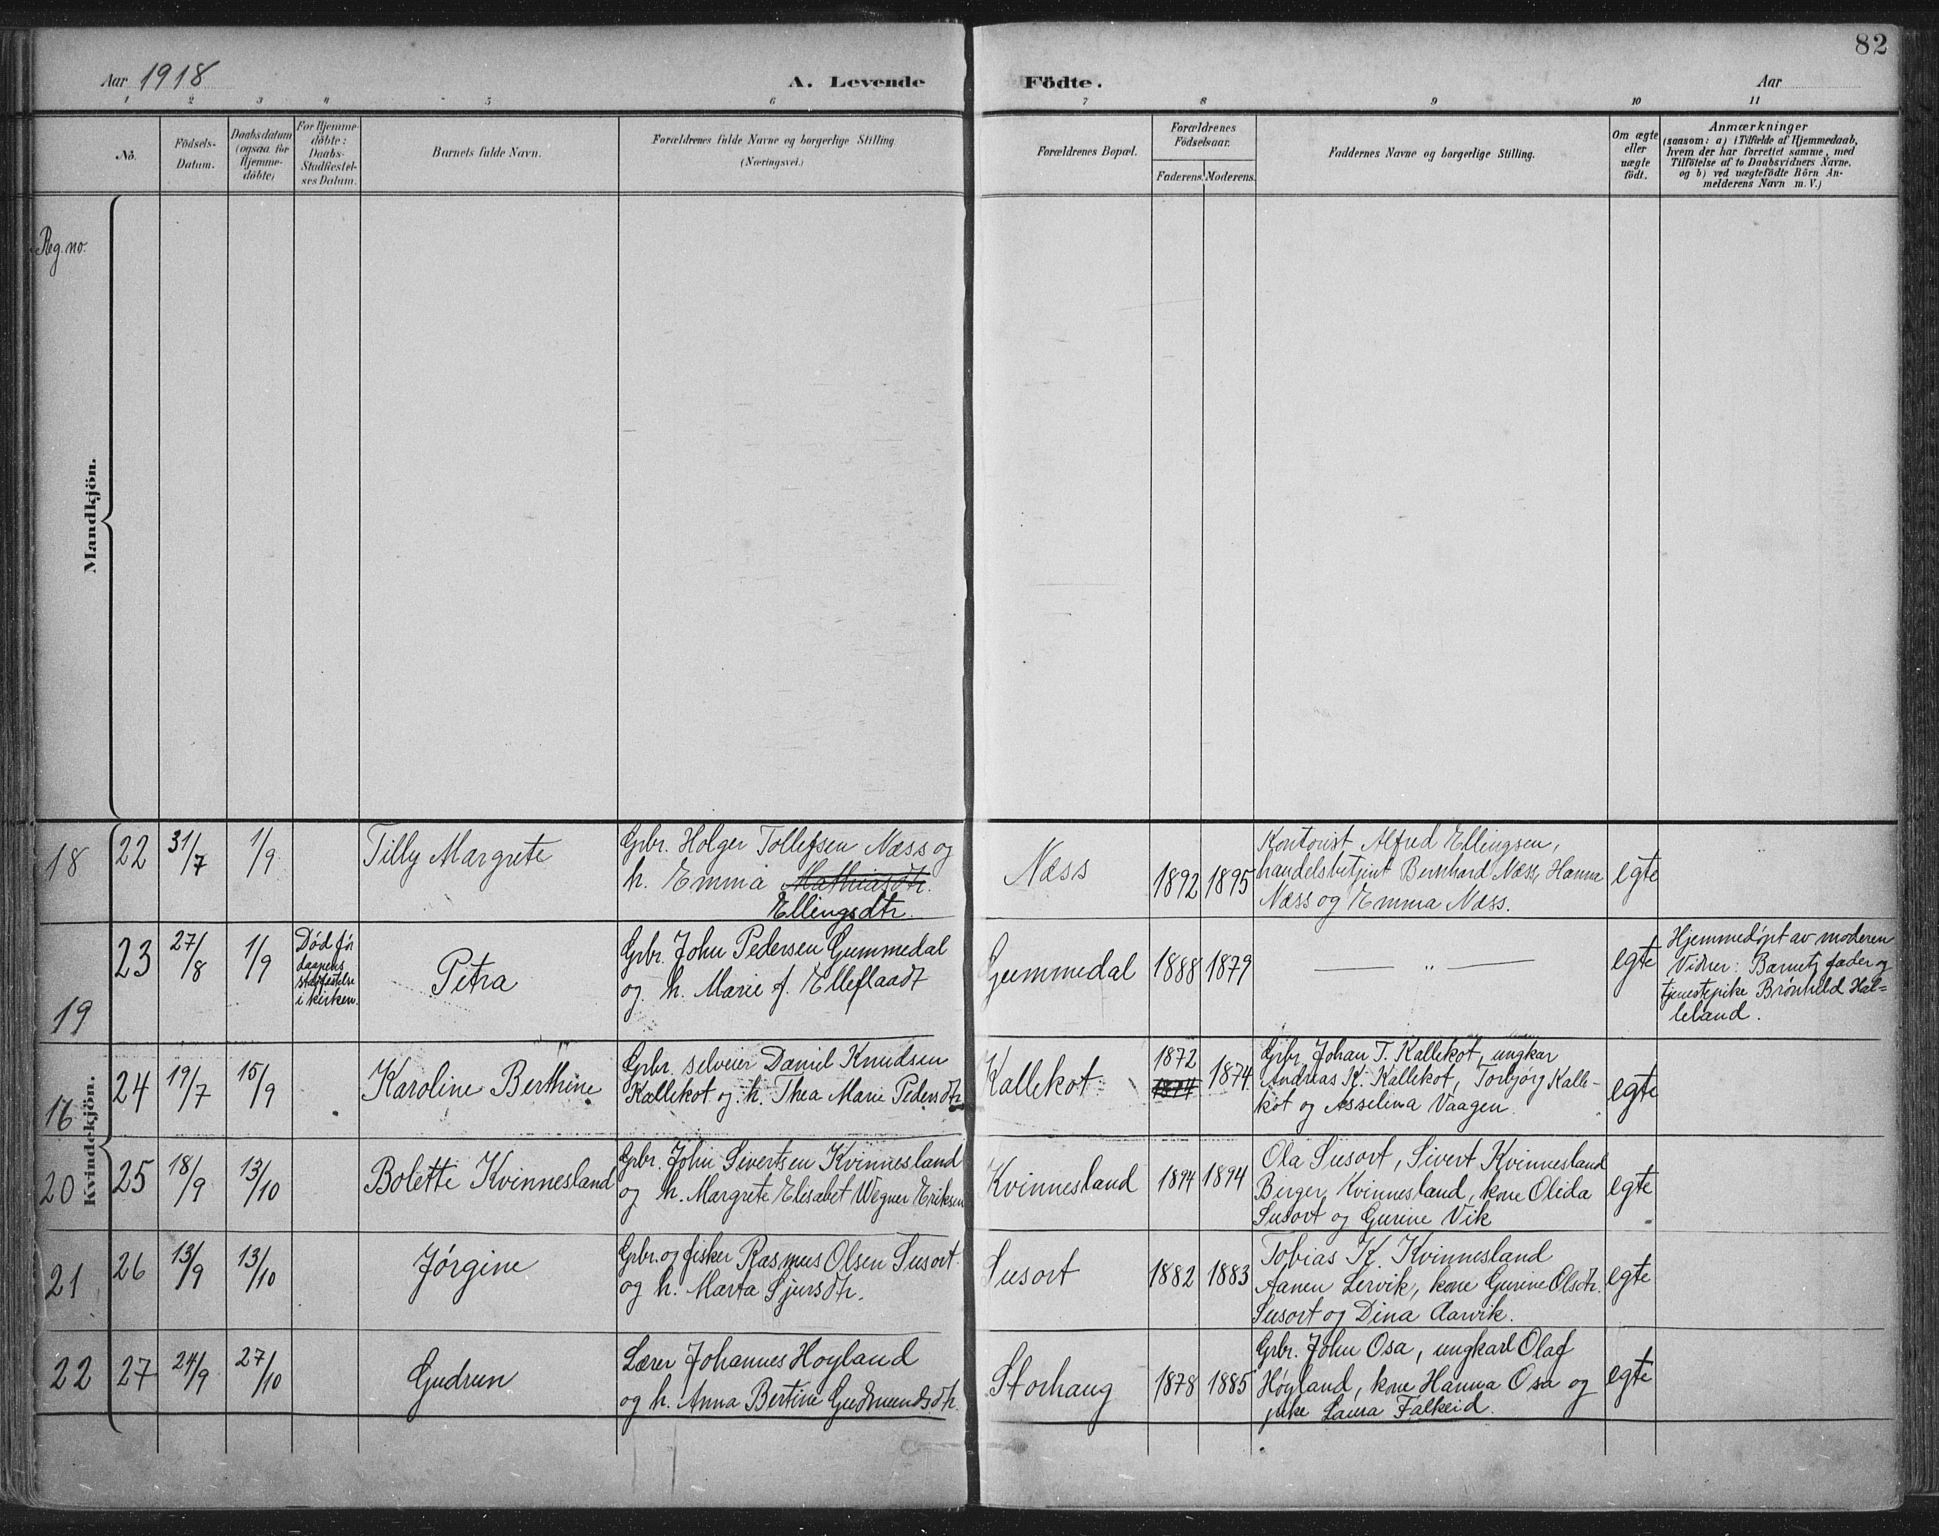 82
Aar 1918
A. Levende Födte.
Aar
1 2 3 4 5 6 7 8 9 10 11
No.
Födsels-
Datum.
Daabsdatum
(ogsaa for
Hjemme-
döbte)
For Hjemme-
döbte:
Daabs-
Stadfæstel-
ses Datum.
Barnets fulde Navn.
Forældrenes fulde Navne og borgerlige Stilling
(Næringsvei.)
Forældrenes Bopæl.
Forældrenes
Födselsaar.
Faderens. Moderens.
Faddernes Navne og borgerlige Stilling.
Om ægte
eller
uægte
födt.
Anmærkninger
(saasom: a) i Tilfælde af Hjemmedaab,
hvem der har forrettet samme, med
Tilföielse af to Daabsvidners Navne.
og b) ved uægtefödte Börn An-
melderens Navn m. V.)
Reg. no.
Mandkjön.
Kvindekjön.
18 22 31/7 1/9
Tilly Margrete
Grbr. Holger Tollefsen Næss og
h. Emma Mathiasdtr.
Ellingsdtr.
Næss
1892 1895
Kontorist Alfred Ellingsen,
handelsbetjent Bernhard Næss, Hanna
Næss og Emma Næss.
egte
19 23 27/8 1/9
Død før
daapens
stadfestelse
i kirken.
Petra
Grbr. John Pedersen Gummedal
og h. Marie f. Elleflaadt
Gummedal
1888 1879
— " —
egte
Hjemmedøpt av moderen
Vidner: Barnets fader og
tjenestepike Brønhild Hal-
leland.
16 24 19/7 15/9
Karoline Berthine
Grbr. selveier Daniel Knudsen
Kallekot og h. Thea Marie Pedersdtr.
Kallekot
1872
1874 1874
Grbr. Johan T. Kallekot, ungkar
Andreas K. Kallekot, Torbjørg Kalle-
kot og Asselina Vaagen.
egte
20 25 18/9 13/10
Bolette Kvinnesland
Grbr. John Sivertsen Kvinnesland
og h. Margrete Elisabet Wegner Eriksen
Kvinnesland
1894 1894
Ola Susort, Sivert Kvinnesland
Birger Kvinnesland, kone Olida
Susort og Gurine Vik
egte
21 26 13/9 13/10
Jørgine
Grbr. og fisker Rasmus Olsen Susort
og h. Marta Sjursdtr.
Susort
1882 1883
Tobias K. Kvinnesland
Aanen Lervik, kone Gurine Olsdtr.
Susort og Dina Aarvik.
egte
22 27 24/9 27/10
Gudrun
Lærer Johannes Hoyland
og h. Anna Bertine Gudmundsdtr.
Storhaug
1878 1885
Grbr. John Osa, ungkarl Olaf
Høyland, kone Hanna Osa og
pike Laura Falkeid.
egte